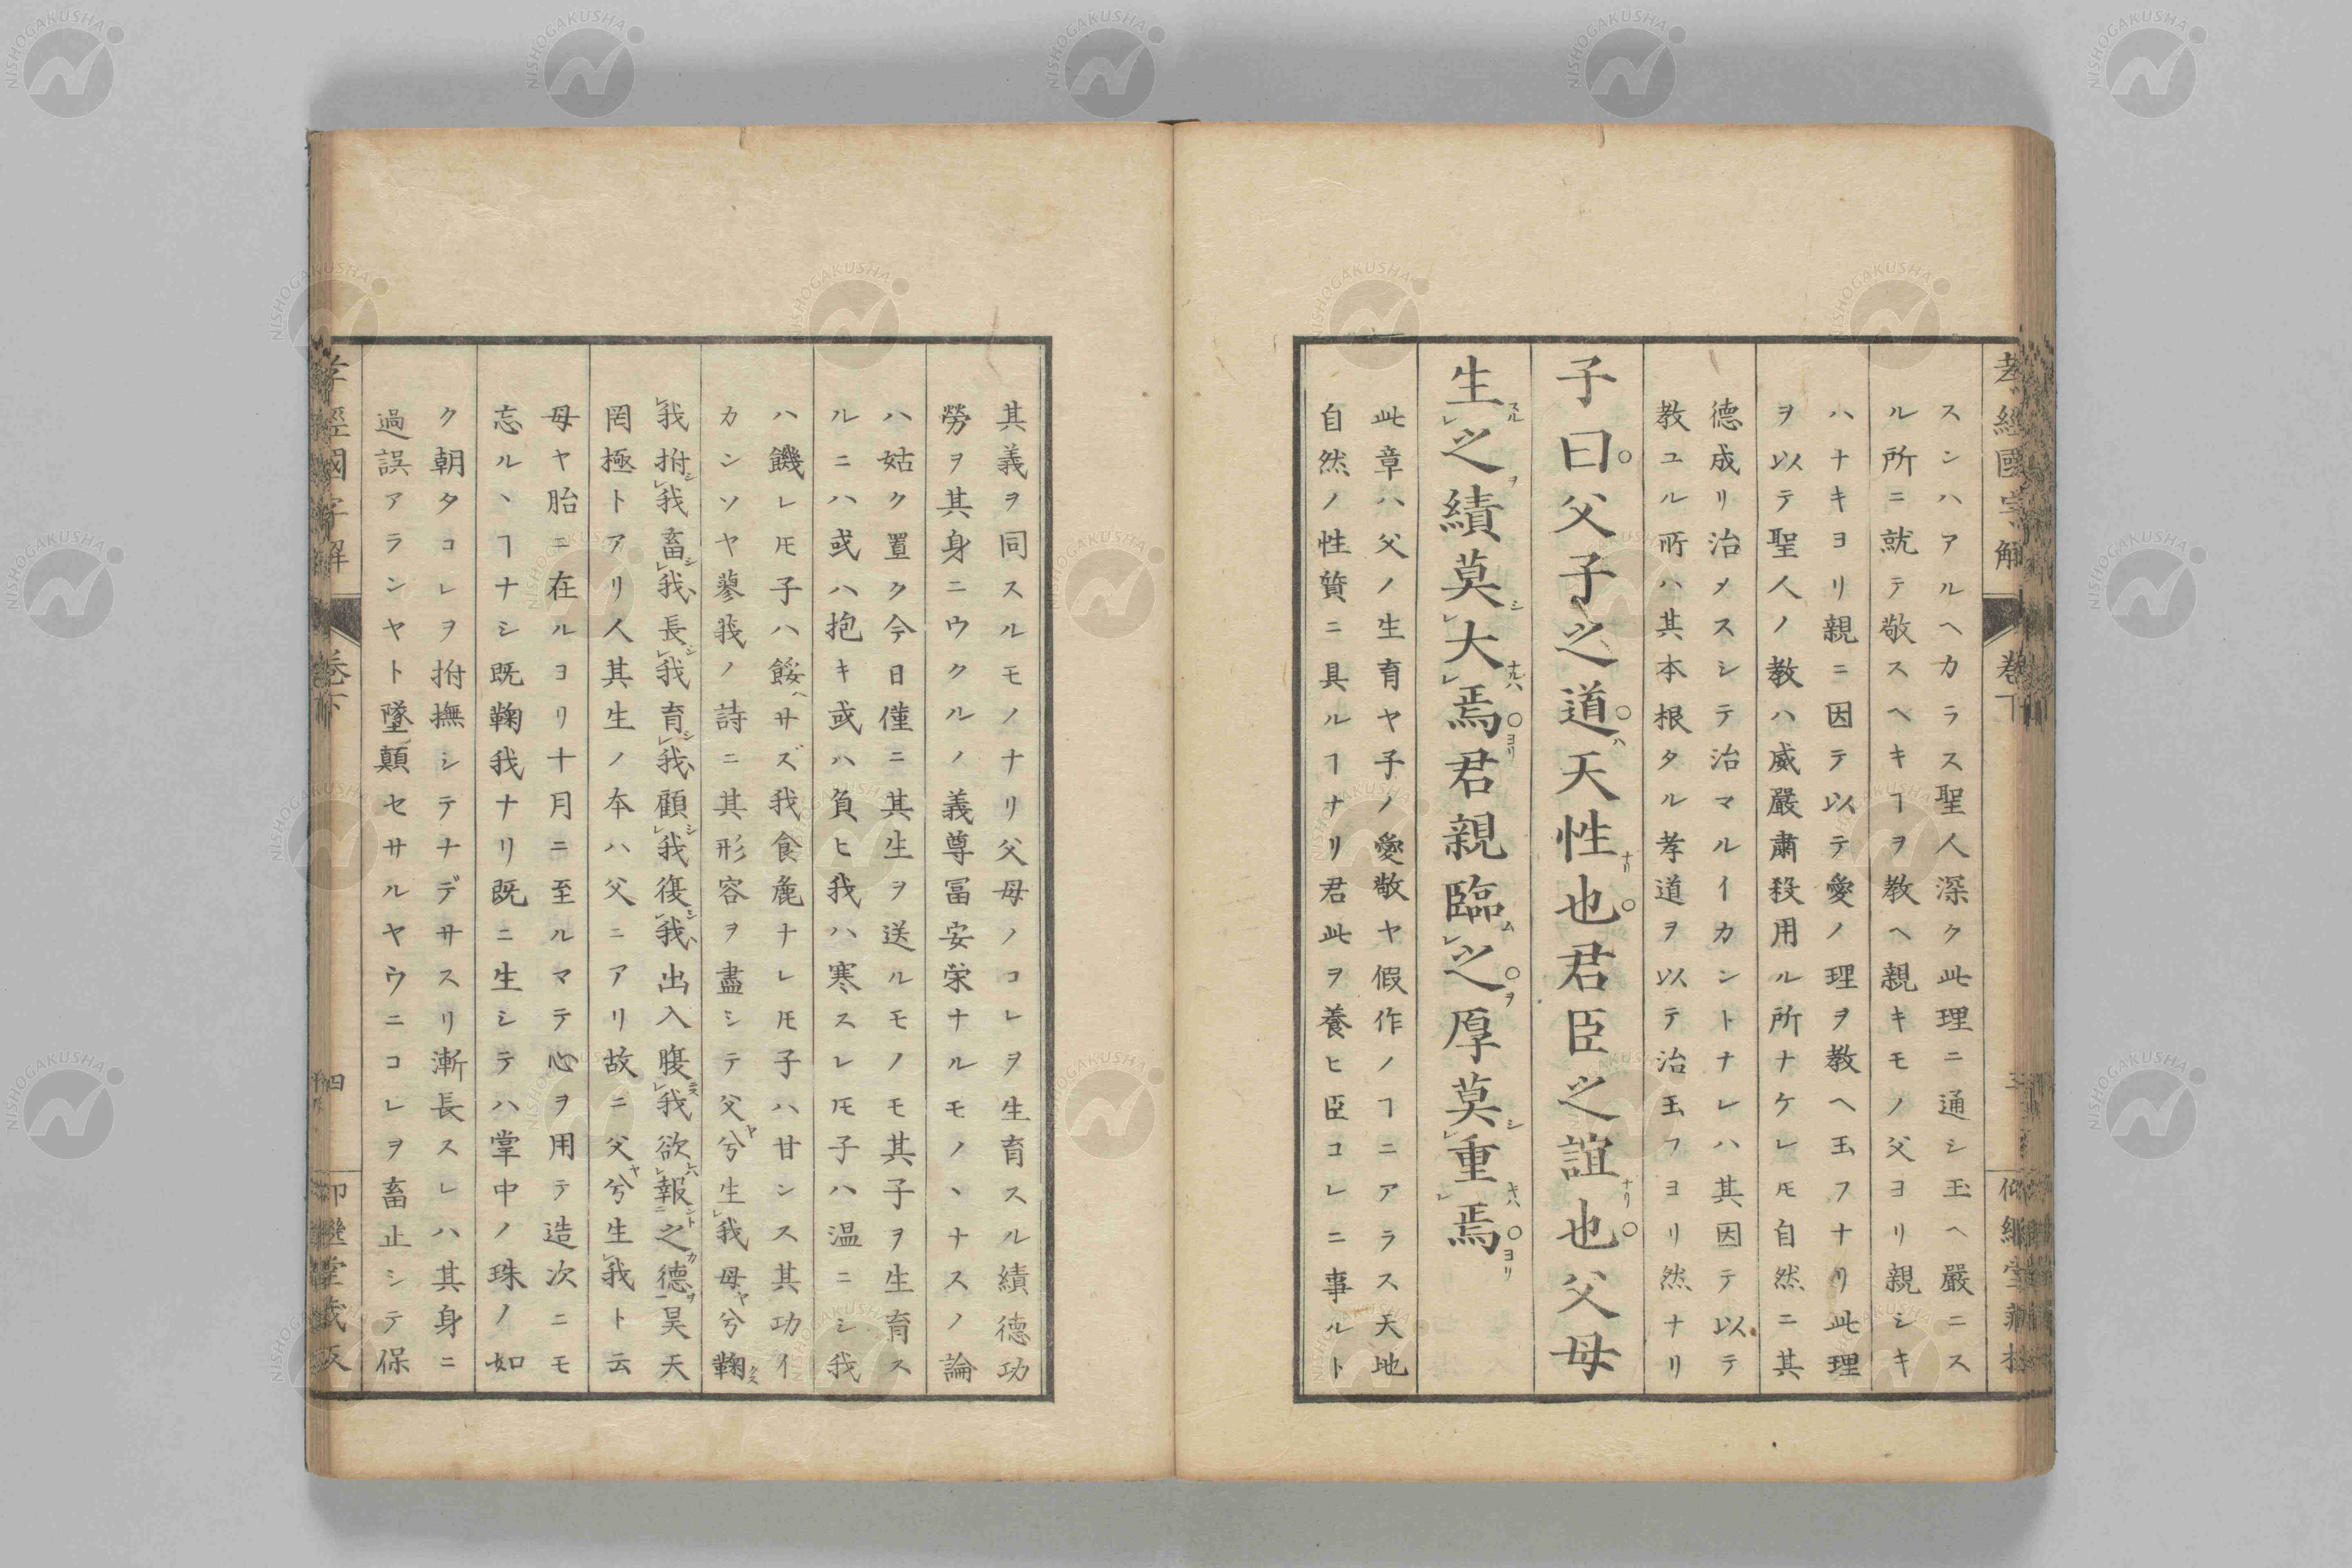 スンハアルヘカラス聖人深ク此理ニ通シ玉ヘ嚴ニス
ル所ニ就テ敬スヘキヿヲ教ヘ親キモノ父ヨリ親シキ
ハナキヨリ親ニ因テ以テ愛ノ理ヲ教ヘ玉フナリ此理
ヲ以テ聖人ノ教ハ威嚴肅殺用ル所ナケレ𪜈自然ニ其
德成リ治メスシテ治マルイカントナレハ其因テ以テ
教ユル所ハ其本根タル孝道ヲ以テ治玉フヨリ然ナリ
子曰父子之道ハ天性ナリ也君臣之誼ナリ也父母
生スル之ヲ績莫シ大ナルハ焉ヨリ君親臨ム之ヲ厚莫シ重キハ焉ヨリ
此章ハ父ノ生育ヤ子ノ愛敬ヤ假作ノヿニアラス天地
自然ノ性質ニ具ルヿナリ君此ヲ養ヒ臣コレニ事ルト
其義ヲ同スルモノナリ父母ノコレヲ生育スル績德功
勞ヲ其身ニウクルノ義尊冨安栄ナルモノヽナスノ論
ハ姑ク置ク今日僅ニ其生ヲ送ルモノモ其子ヲ生育ス
ルニハ或ハ抱キ或ハ負ヒ我ハ寒スレ𪜈子ハ温ニシ我
ハ饑レ𪜈子ハ餒ヘサズ我食麁ナレ𪜈子ハ甘ンス其功イ
カンソヤ蓼莪ノ詩ニ其形容ヲ盡シテ父ヤ兮生レ我母ヤ兮鞠クス
レ我拊シレ我畜シレ我長シレ我育シレ我顧シレ我復シレ我出入腹ニスレ我欲レ報ント之カ德ヲ昊天
罔極トアリ人其生ノ本ハ父ニアリ故ニ父ヤ兮生レ我ト云
母ヤ胎ニ在ルヨリ十月ニ至ルマテ心ヲ用テ造次ニモ
忘ルヽヿナシ既鞠我ナリ既ニ生シテハ掌中ノ珠ノ如
ク朝タコレヲ拊撫シテナデサスリ漸長スレハ其身ニ
過誤アランヤト墜顛セサルヤウニコレヲ畜止シテ保
經國字解
卷下
四